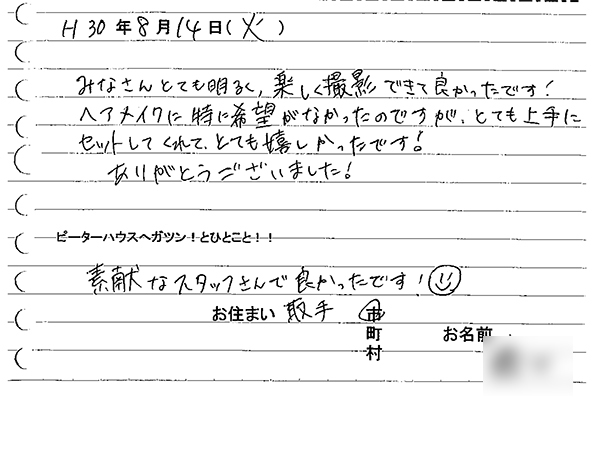 H 30 年 8 月 14 日(火)
みなさんとても明るく、楽しく撮影できて良かったです!
ヘアメイクに特に希望がなかったのですが、とても上手に
セットしてくれて、とても嬉しかったです!
ありがとうございました!
ピーターハウスへガツン!とひとこと!!
素献なスタッフさんで良かったです!
お住まい 取手 市
町
村
お名前